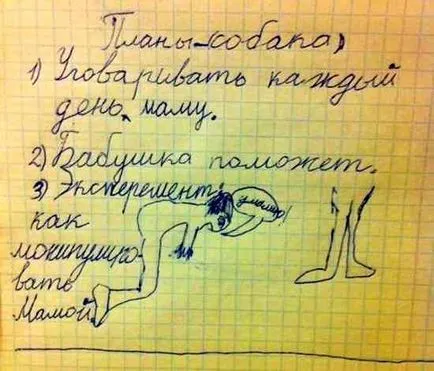 Планы-собака)
1) Уговаривать каждый
день маму.
2) Бабушка поможет.
3) Эксперемент:
умоляю!
как
монипулиро-
вать
Мамой